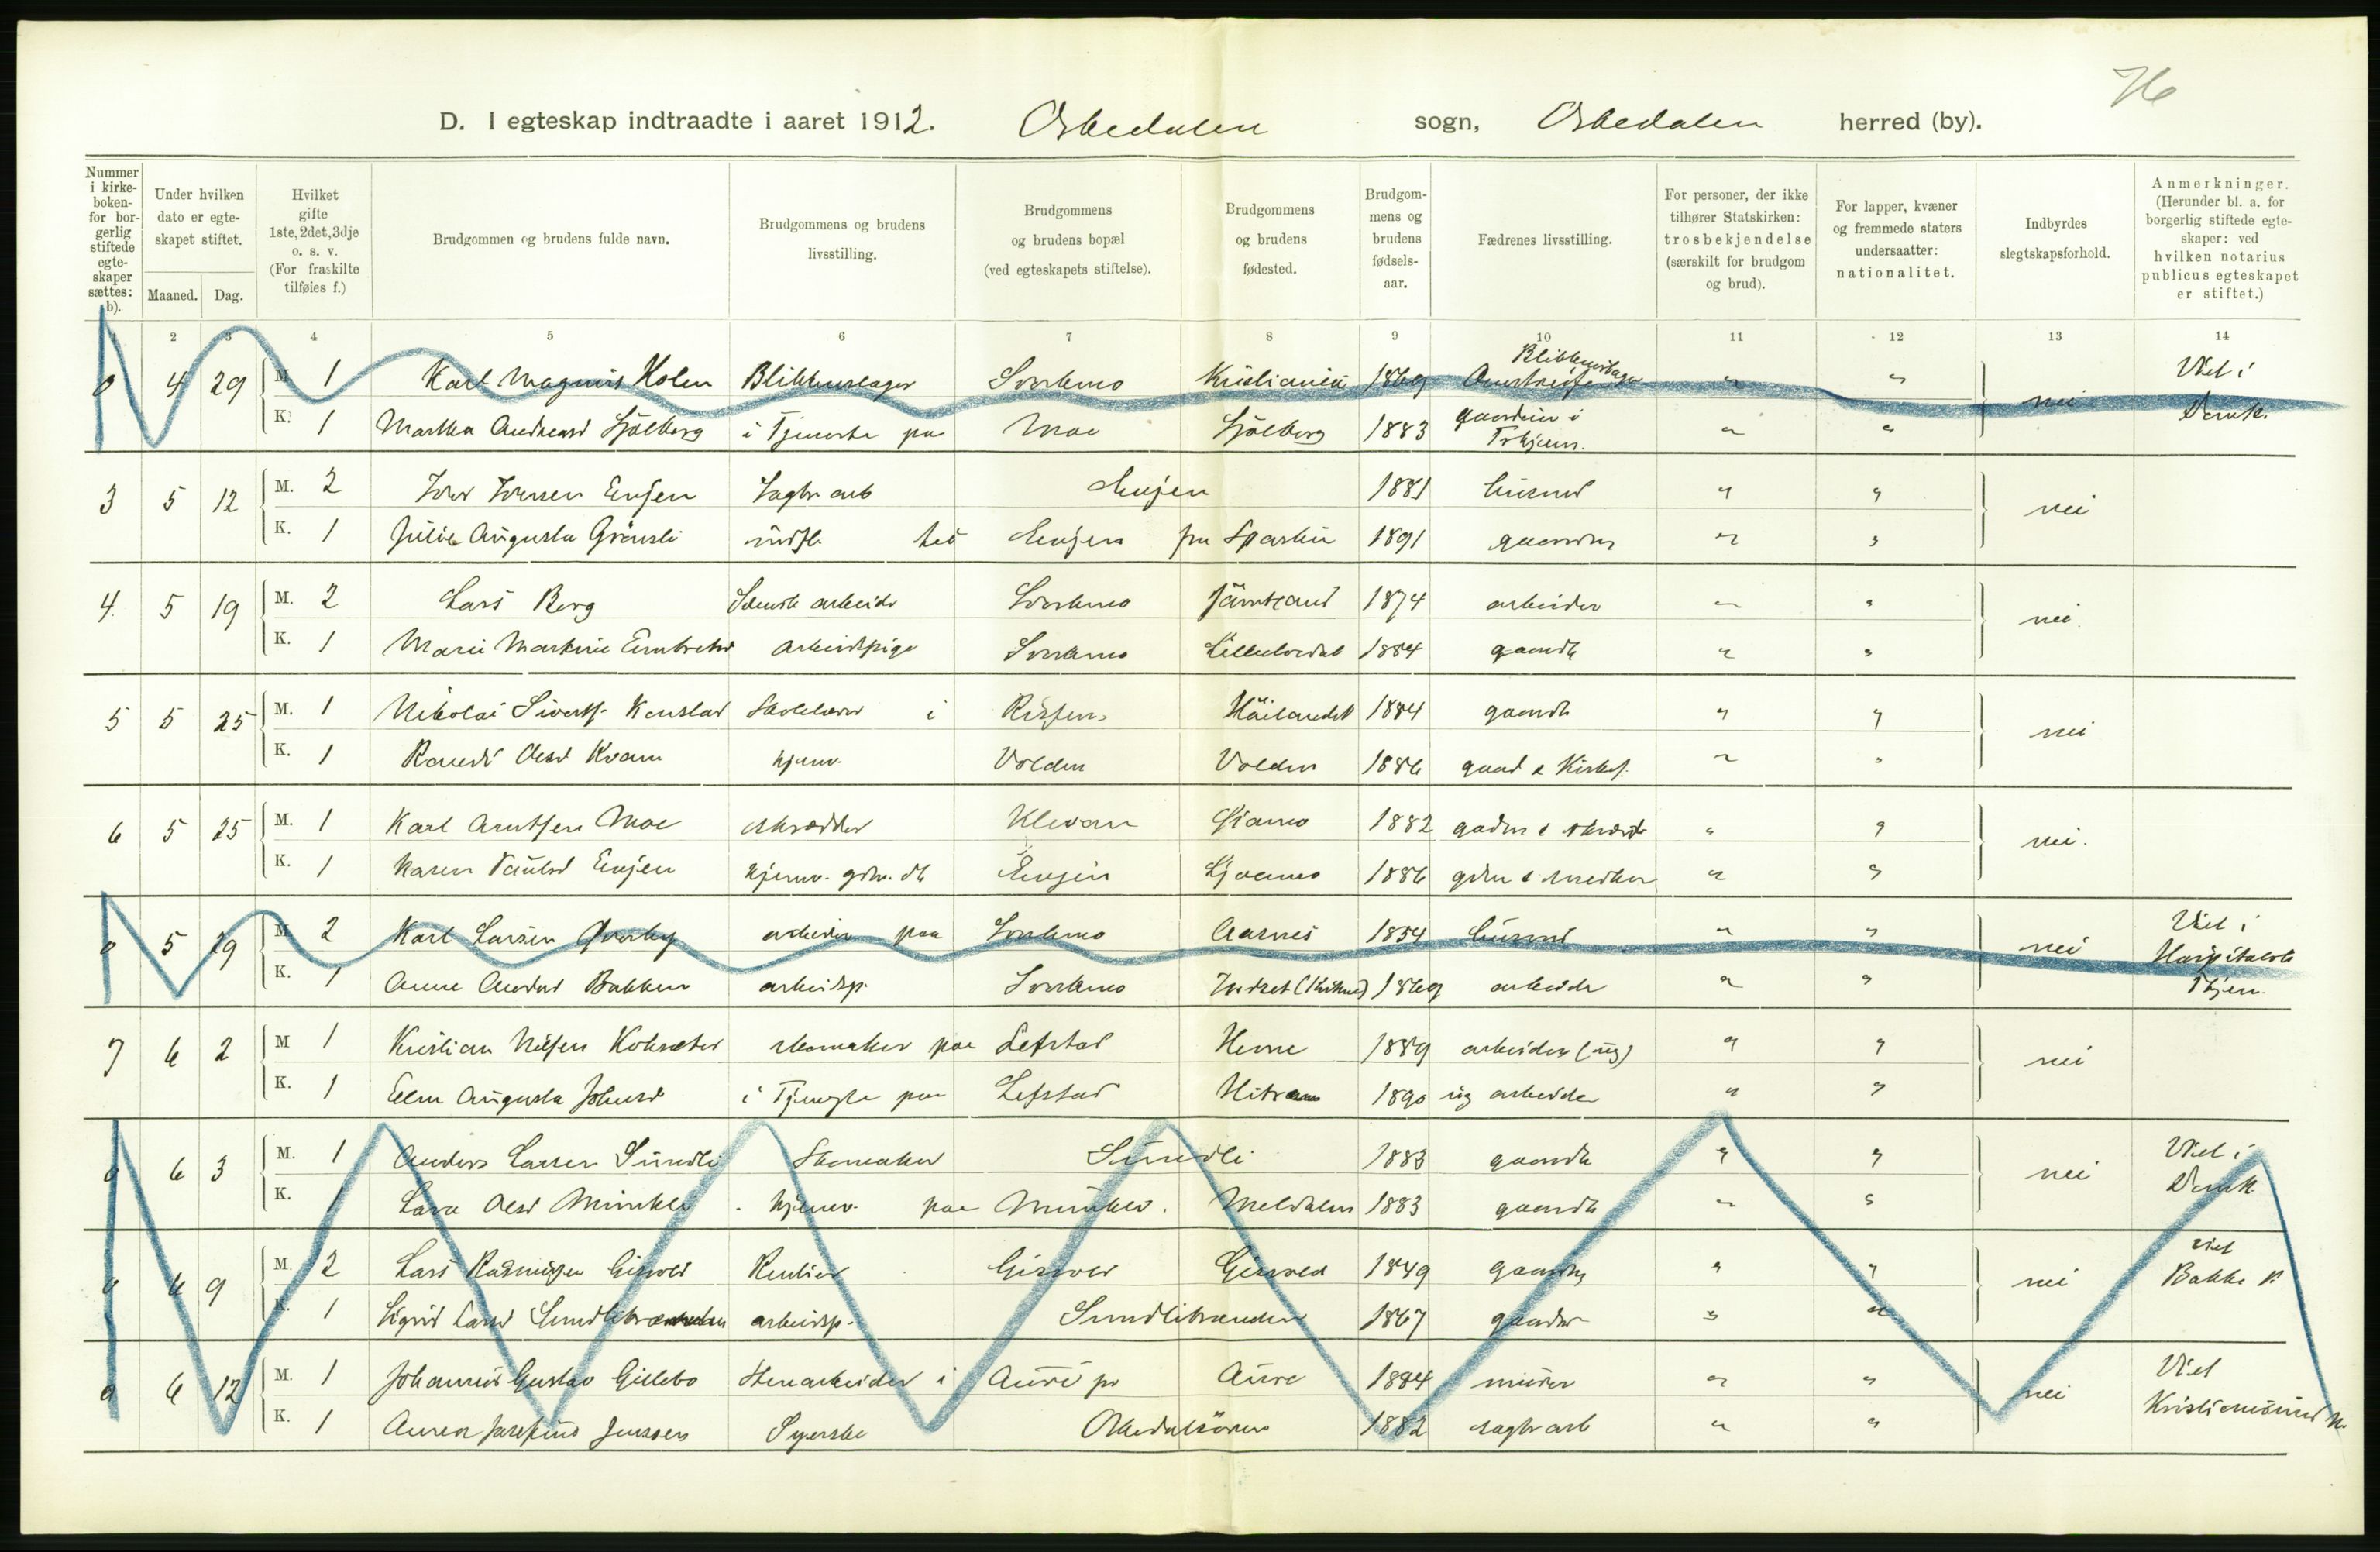 76
D. I egteskap indtraadte i aaret 1912. Orkedalen sogn, Orkedalen herred (by).
Nummer i kirke-boken- for bor-gerlig stiftede egte-skaper sættes: b).
Under hvilken dato er egte-skapet stiftet.
Maaned. Dag.
Hvilket gifte 1ste, 2det, 3dje o. s. v. (For fraskilte tilføies f.)
Brudgommen og brudens fulde navn.
Brudgommens og brudens livsstilling.
Brudgommens og brudens bopæl (ved egteskapets stiftelse).
Brudgommens og brudens fødested.
Brudgom-mens og brudens fødsels-aar.
Fædrenes livsstilling.
For personer, der ikke tilhører Statskirken: trosbekjendelse (særskilt for brudgom og brud).
For lapper, kvæner og fremmede staters undersaatter: nationalitet.
Indbyrdes slegtskapsforhold.
Anmerkninger. (Herunder bl. a. for borgerlig stiftede egte-skaper: ved hvilken notarius publicus egteskapet er stiftet.)
1 2 3 4 5 6 7 8 9 10 11 12 13 14
0 4 29 M. 1 Karl Magnus Holen Blikkenslager Svorkmo Kristiania 1869 Blikkenslager " " nei Viet i
K. 1 Martha Andreasd Sjölberg i Tjeneste paa Moe Sjölberg 1883 gaardm i Trhjem. " " Domk.
3 5 12 M. 2 Sagbr arb Evjen 1881 husmd " " nei
K. 1 Julie Augusta Grönsli indfl. hos Evjen fra Sparbu 1891 gaardm " "
4. 5 19 M. 2 Lars Berg arbeider Svorkmo Jämtland 1874 arbeider " " nei.
K. 1 Marie Martine Embretsd arbeidspige Svorkmo Lilleelvedal 1884 gaardb " "
5 5 25 M. 1 Nikolai Sivertsen Skolelærer i Rissen Höilandet 1884 gaardb " " nei
K. 1 Randi Olsd Kvam hjemv. Volden Volden 1886 gaard & Kirkes. " "
6 5 25 M. 1 Karl Arntsen Moe skrædder Klevan 1882 gadm & skrædd " " nei.
K. 1 Karen Paulsd Evjen hjemv. gdm. dt Evjen 1886 gdm & snedker " "
0 5 29 M. 2 Karl Larsen arbeider paa Svorkmo Aasnes 1854 husmd " " nei Viet i
K. 1 Anne Andersd Bakken arbeidsp. Svorkmo Indset (Kvikne) 1869 arbeider " " Hospitalsk Thjem.
7 6 2 M 1 Kristian Nilsen skomaker paa Lefstad Hevne 1889 arbeider (ug) " " nei
K. 1 Elen Augusta Johnsd i Tjeneste paa Lefstad Hitra 1890 ug arbeider " "
0 6 3 M. 1 Anders Larsen Sundli Skomaker Sundli 1883 gaardb " " nei Viet i
K. 1 Olsd hjemv. paa Meldalen 1883 gaardb " " Domk
0 6 9 M. 2 Lars Rasmussen Gisvold Rentier Gisvold Gisvold 1849 gaardm " " nei Viet
K. 1 Sigrid Larsd arbeidsp. Sundlibrænden 1867 gaardm " " Bakke K
0 6 12 M. 1 Johannes Gustav Gillebo Stenarbeider i Aure pr Aure 1884 murer " " nei Viet
K. 1 Josefine Jensen Syerske Orkedalsören 1882 sagbr arb " " Kristiansund N.